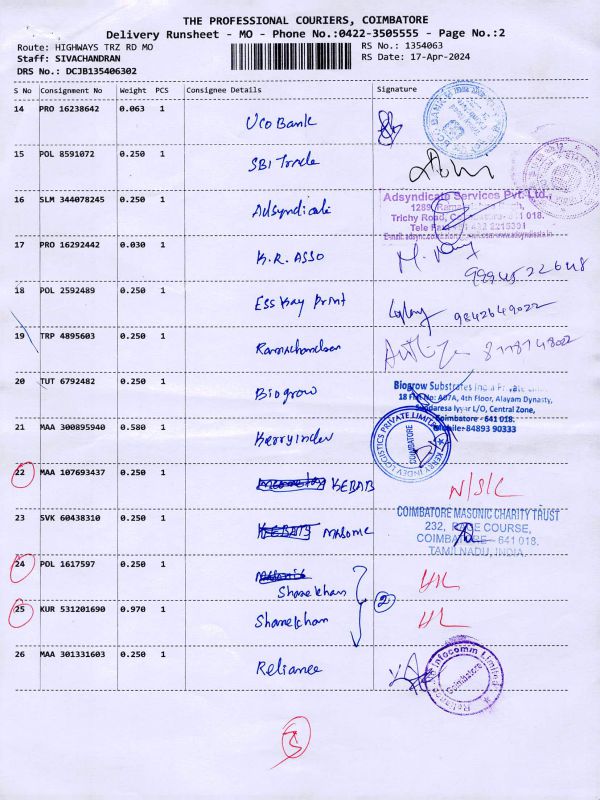 THE PROFESSIONAL COURIERS, COIMBATORE
Delivery Runsheet - MO - Phone No.:0422-3505555 - Page No.:2
Route: HIGHWAYS TRZ RD MO
RS No.: 1354063
Staff: SIVACHANDRAN
RS Date: 17-Apr-2024
DRS No.: DCJB135406302
S No Consignment No Weight PCS Consignee Details Signature
14 PRO 16238642 0.063 1 UCO Bank
15 POL 8591072 0.250 1 SBI Trade
16 SLM 344078245 0.250 1 Adsyndicate
Adsyndicate Services Pvt. Ltd.,
1289,
Trichy Road, 641 018.
17 PRO 16292442 0.030 1 K.R. ASSO
18 POL 2592489 0.250 1 Ess Kay Print 9842649022
19 TRP 4895603 0.250 1 Ramchandran
20 TUT 6792482 0.250 1 Biogrow
Biogrow Substrates India Private
18 Flat No: A07A, 4th Floor, Alayam Dynasty,
L/O, Central Zone,
Coimbatore - 641 018.
Mobile: 84893 90333
21 MAA 300895940 0.580 1 Kerry Indev
KERRY INDEV LOGISTICS PRIVATE LIMITED
COIMBATORE
22 MAA 107693437 0.250 1 KEBAB N/S/C
23 SVK 60438310 0.250 1 KEBAB MASONIC
COIMBATORE MASONIC CHARITY TRUST
232, RACE COURSE,
COIMBATORE - 641 018.
TAMIL NADU, INDIA.
24 POL 1617597 0.250 1
25 KUR 531201690 0.970 1 2
26 MAA 301331603 0.250 1 Reliance
Reliance Infocomm Limited
Coimbatore